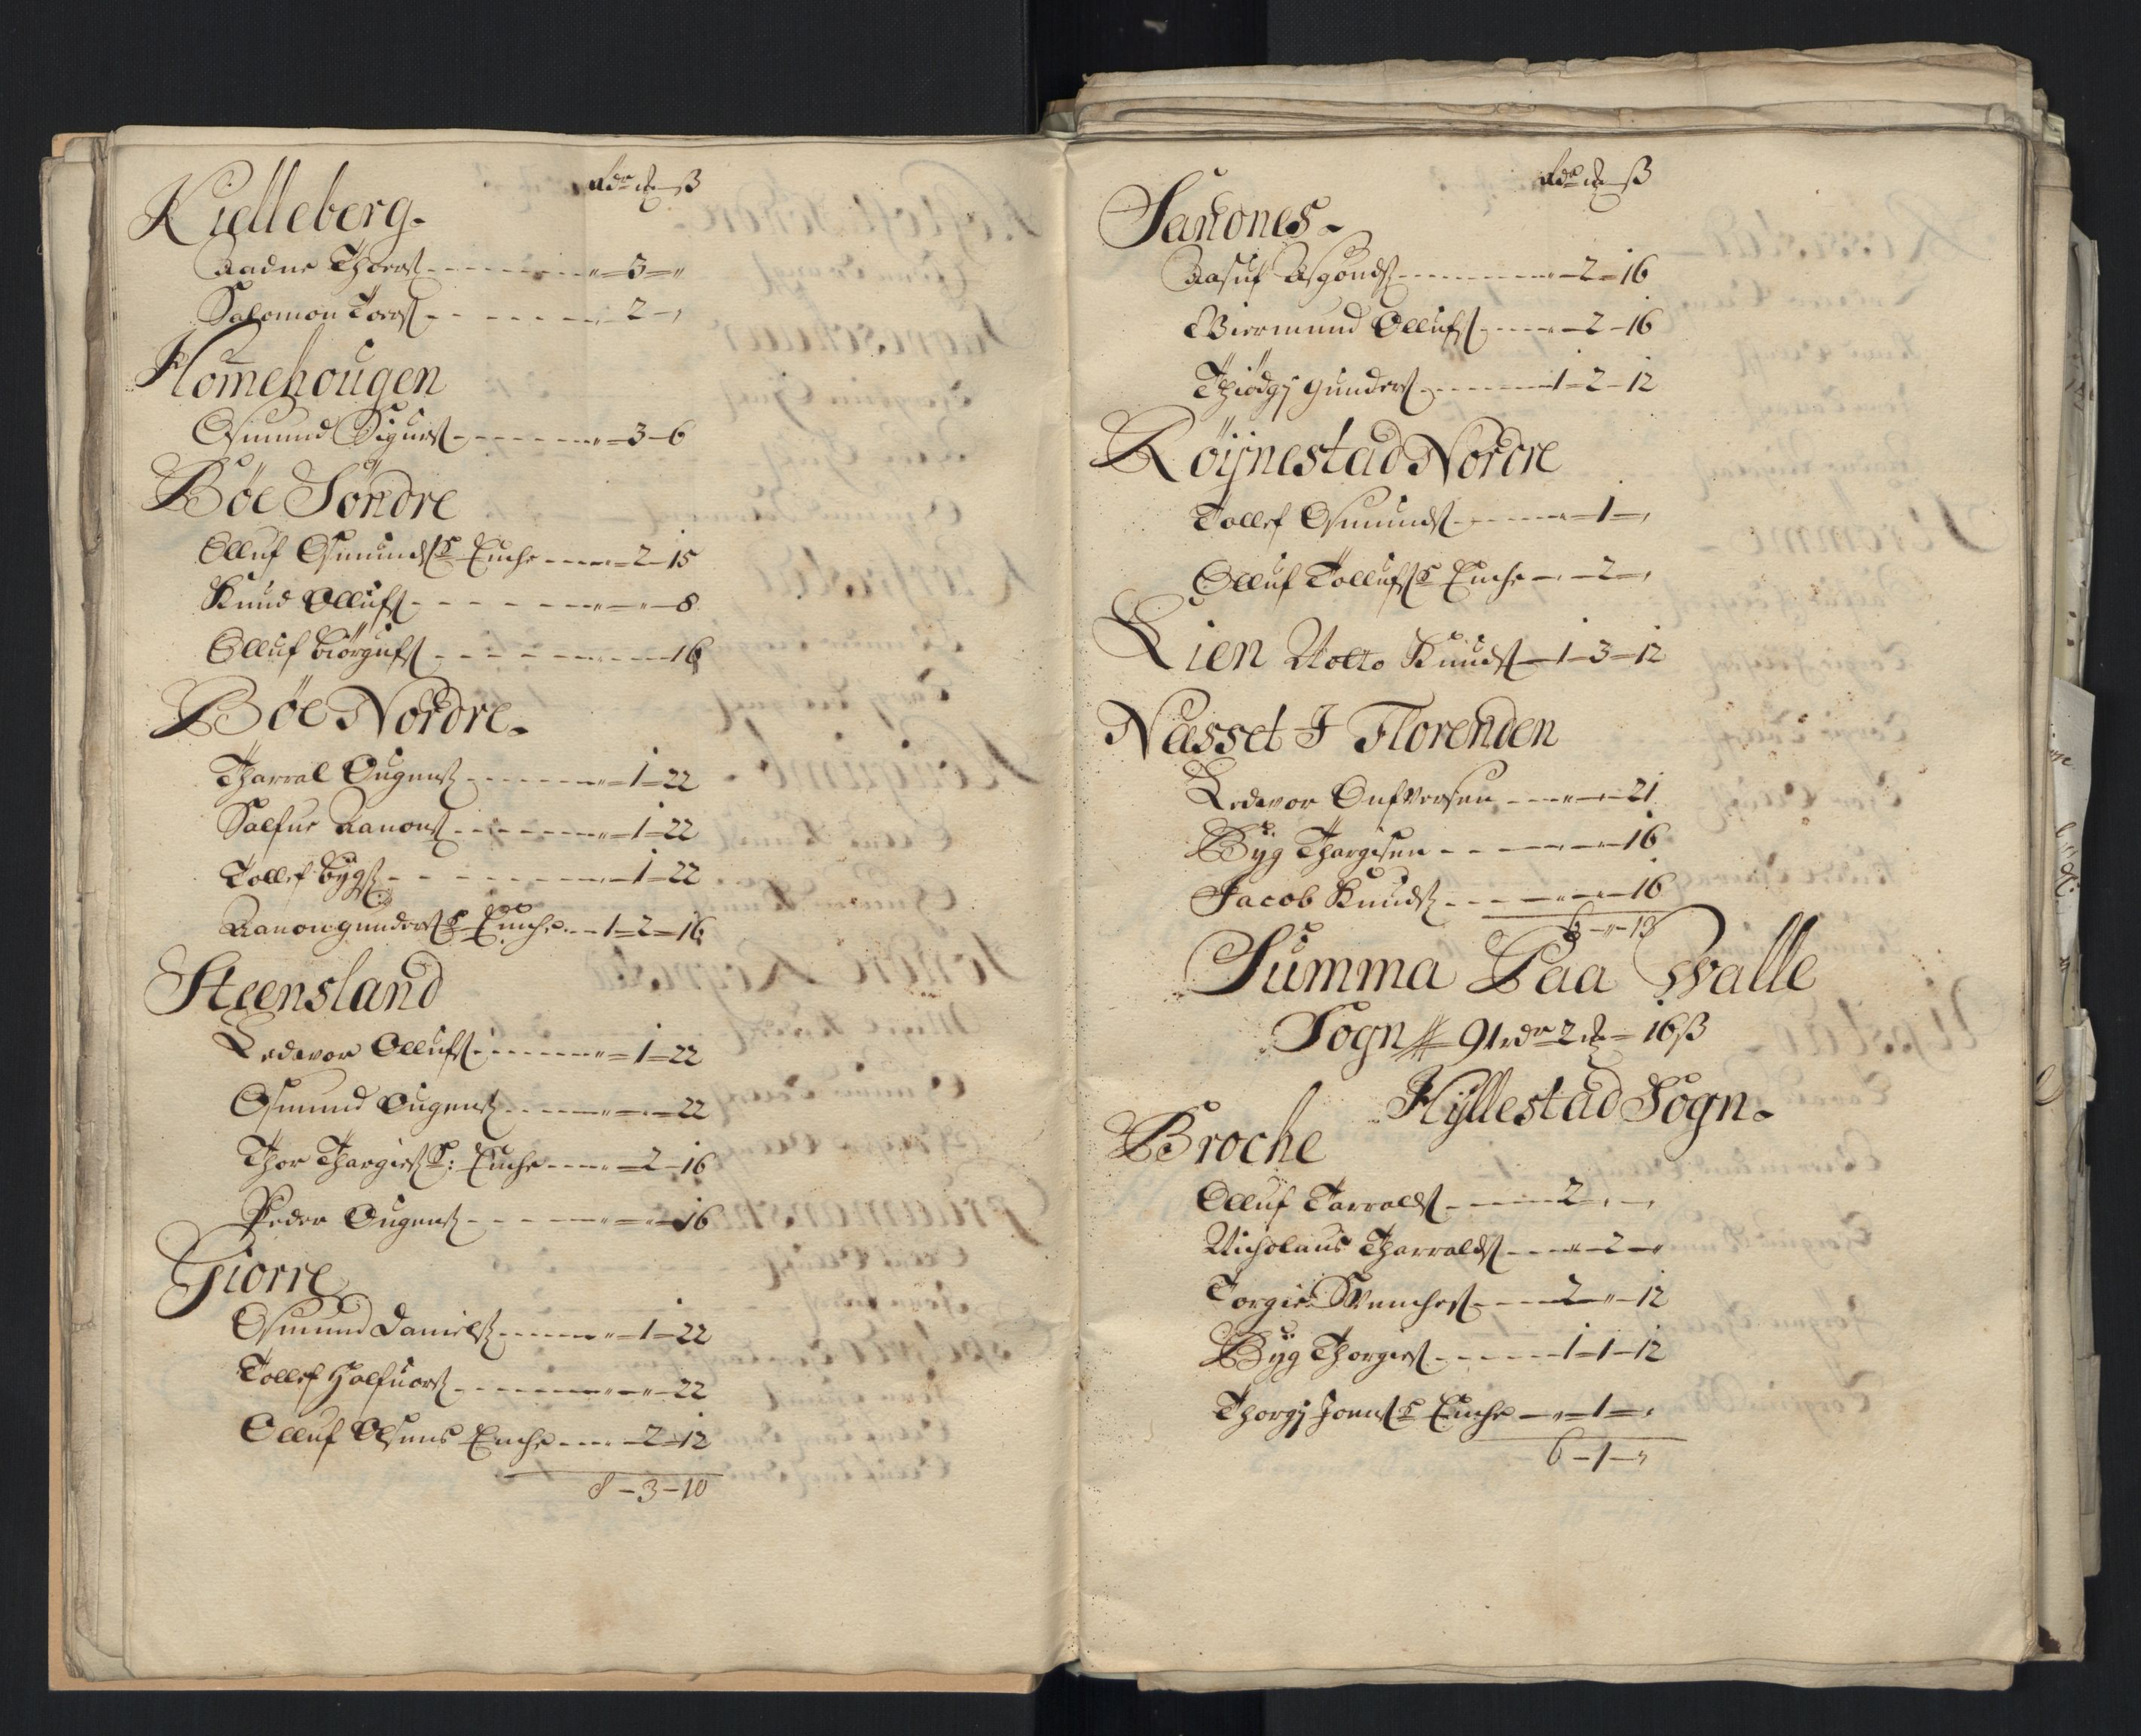 rdr ort ß
Kielleberg.
Aadne Thorß - - - „ = 3 = „
Salomon Torß - - - - 2 - ,
Homehougen
Osmund Sigurß - - - „ = 3 - 6
Böe Söndre
Olluf Osmundß Enche - - - = 2 - 15
Knud Ollufß - - - „ - „ - 8
Olluf Biörgufß - - - - 16
Böe Nordre.
Tharral Ougenß - - - „ = 1 = 22
Salfue Aanonß - - - „ = 1 = 22
Tollef Bygß - - - - 1 = 22
Aanon gunderß Enche - - 1 = 2 = 16
Steensland
Ledevor Ollufß - - - „ = 1 = 22
Osmund Ougenß - - - „ - 22
Thor Thargieß E: Enche - - - = 2 - 16
Peder Ougenß - - - „ = „ 16
Giorre
Osmund Danielß - - - „ - 1 = 22
Tollef Halfuorß - - - „ - „ - 22
Olluf Olsens Enche - - - 2 = 12
8 - 3 - 10
rdr ort ß
Sanones.
Aasuf Asgondß - - - „ - 2 = 16
Wiermund Ollufß - - - „ - 2 - 16
Thiodgj gunderß - - - 1 = 2 - 12
Röijnestad Nordre
Tollef Osmundß - - - „ = 1 = ,
Olluf Tollufß Enche - „ - 2 = ,
Lien Notto Knudß - 1 - 3 = 12
Næsset I Florenden
Ledevor Enfversen - - - „ - 21
Byg Thargisen - - - - 16
Jacob Knudß - - - „ - 16
6 - „ - 13
Summa Paa Walle
Sogn 91 rdr 2 ort = 16 ß
Hyllestad Sogn.
Broche
Olluf Tarraldß - - - 2 - , - ,
Nicholaus Tharraldß - - - „ - 2 - „
Torgie Svenchesß - - - 2 - „ - 12
Byg Thorgieß - - - 1 = 1 - 12
Thorgj Jonnß Enche - „ = 1 = ,
6 - 1 - „